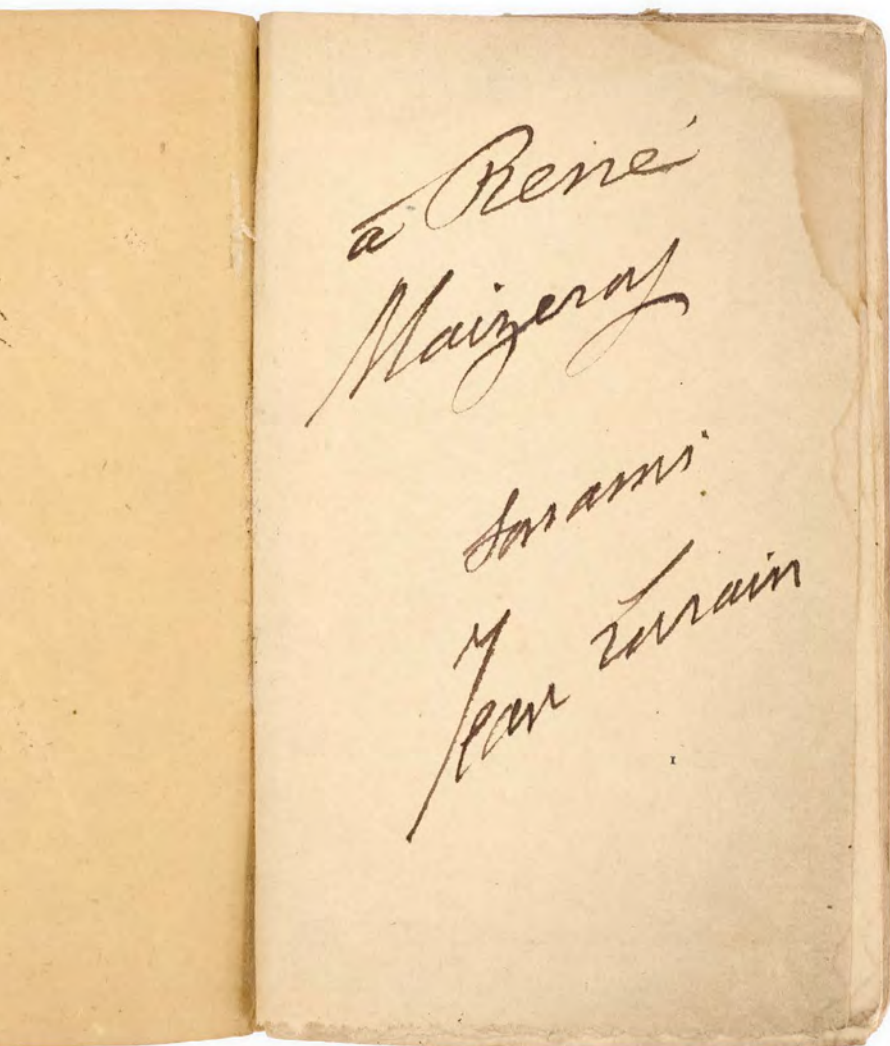 à René
Maizeroy
son ami
Jean Lorrain
I